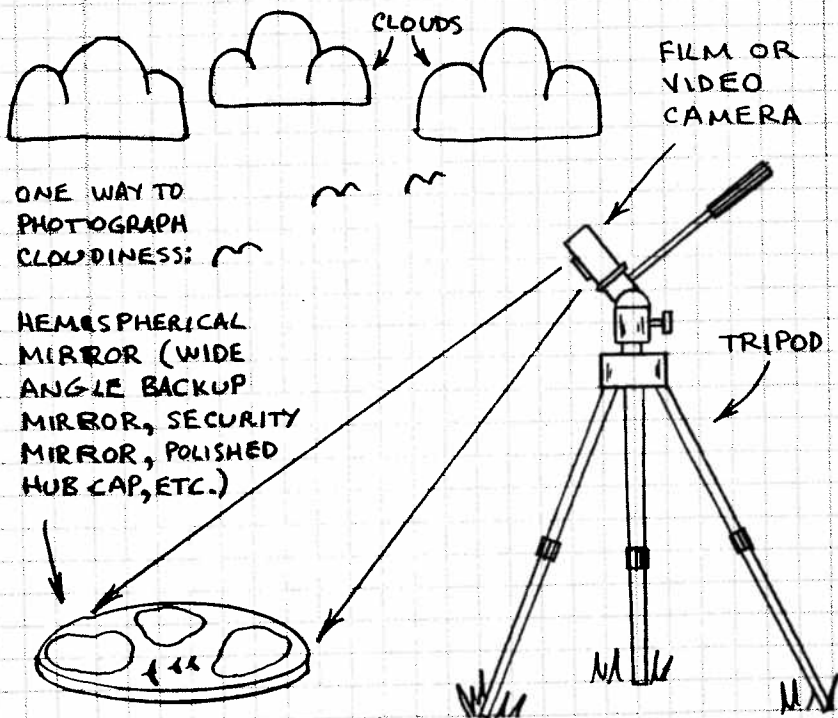 CLOUDS
FILM OR
VIDEO
CAMERA
ONE WAY TO
PHOTOGRAPH
CLOUDINESS:
HEMISPHERICAL
MIRROR (WIDE
ANGLE BACKUP
MIRROR, SECURITY
MIRROR, POLISHED
HUB CAP, ETC.)
TRIPOD